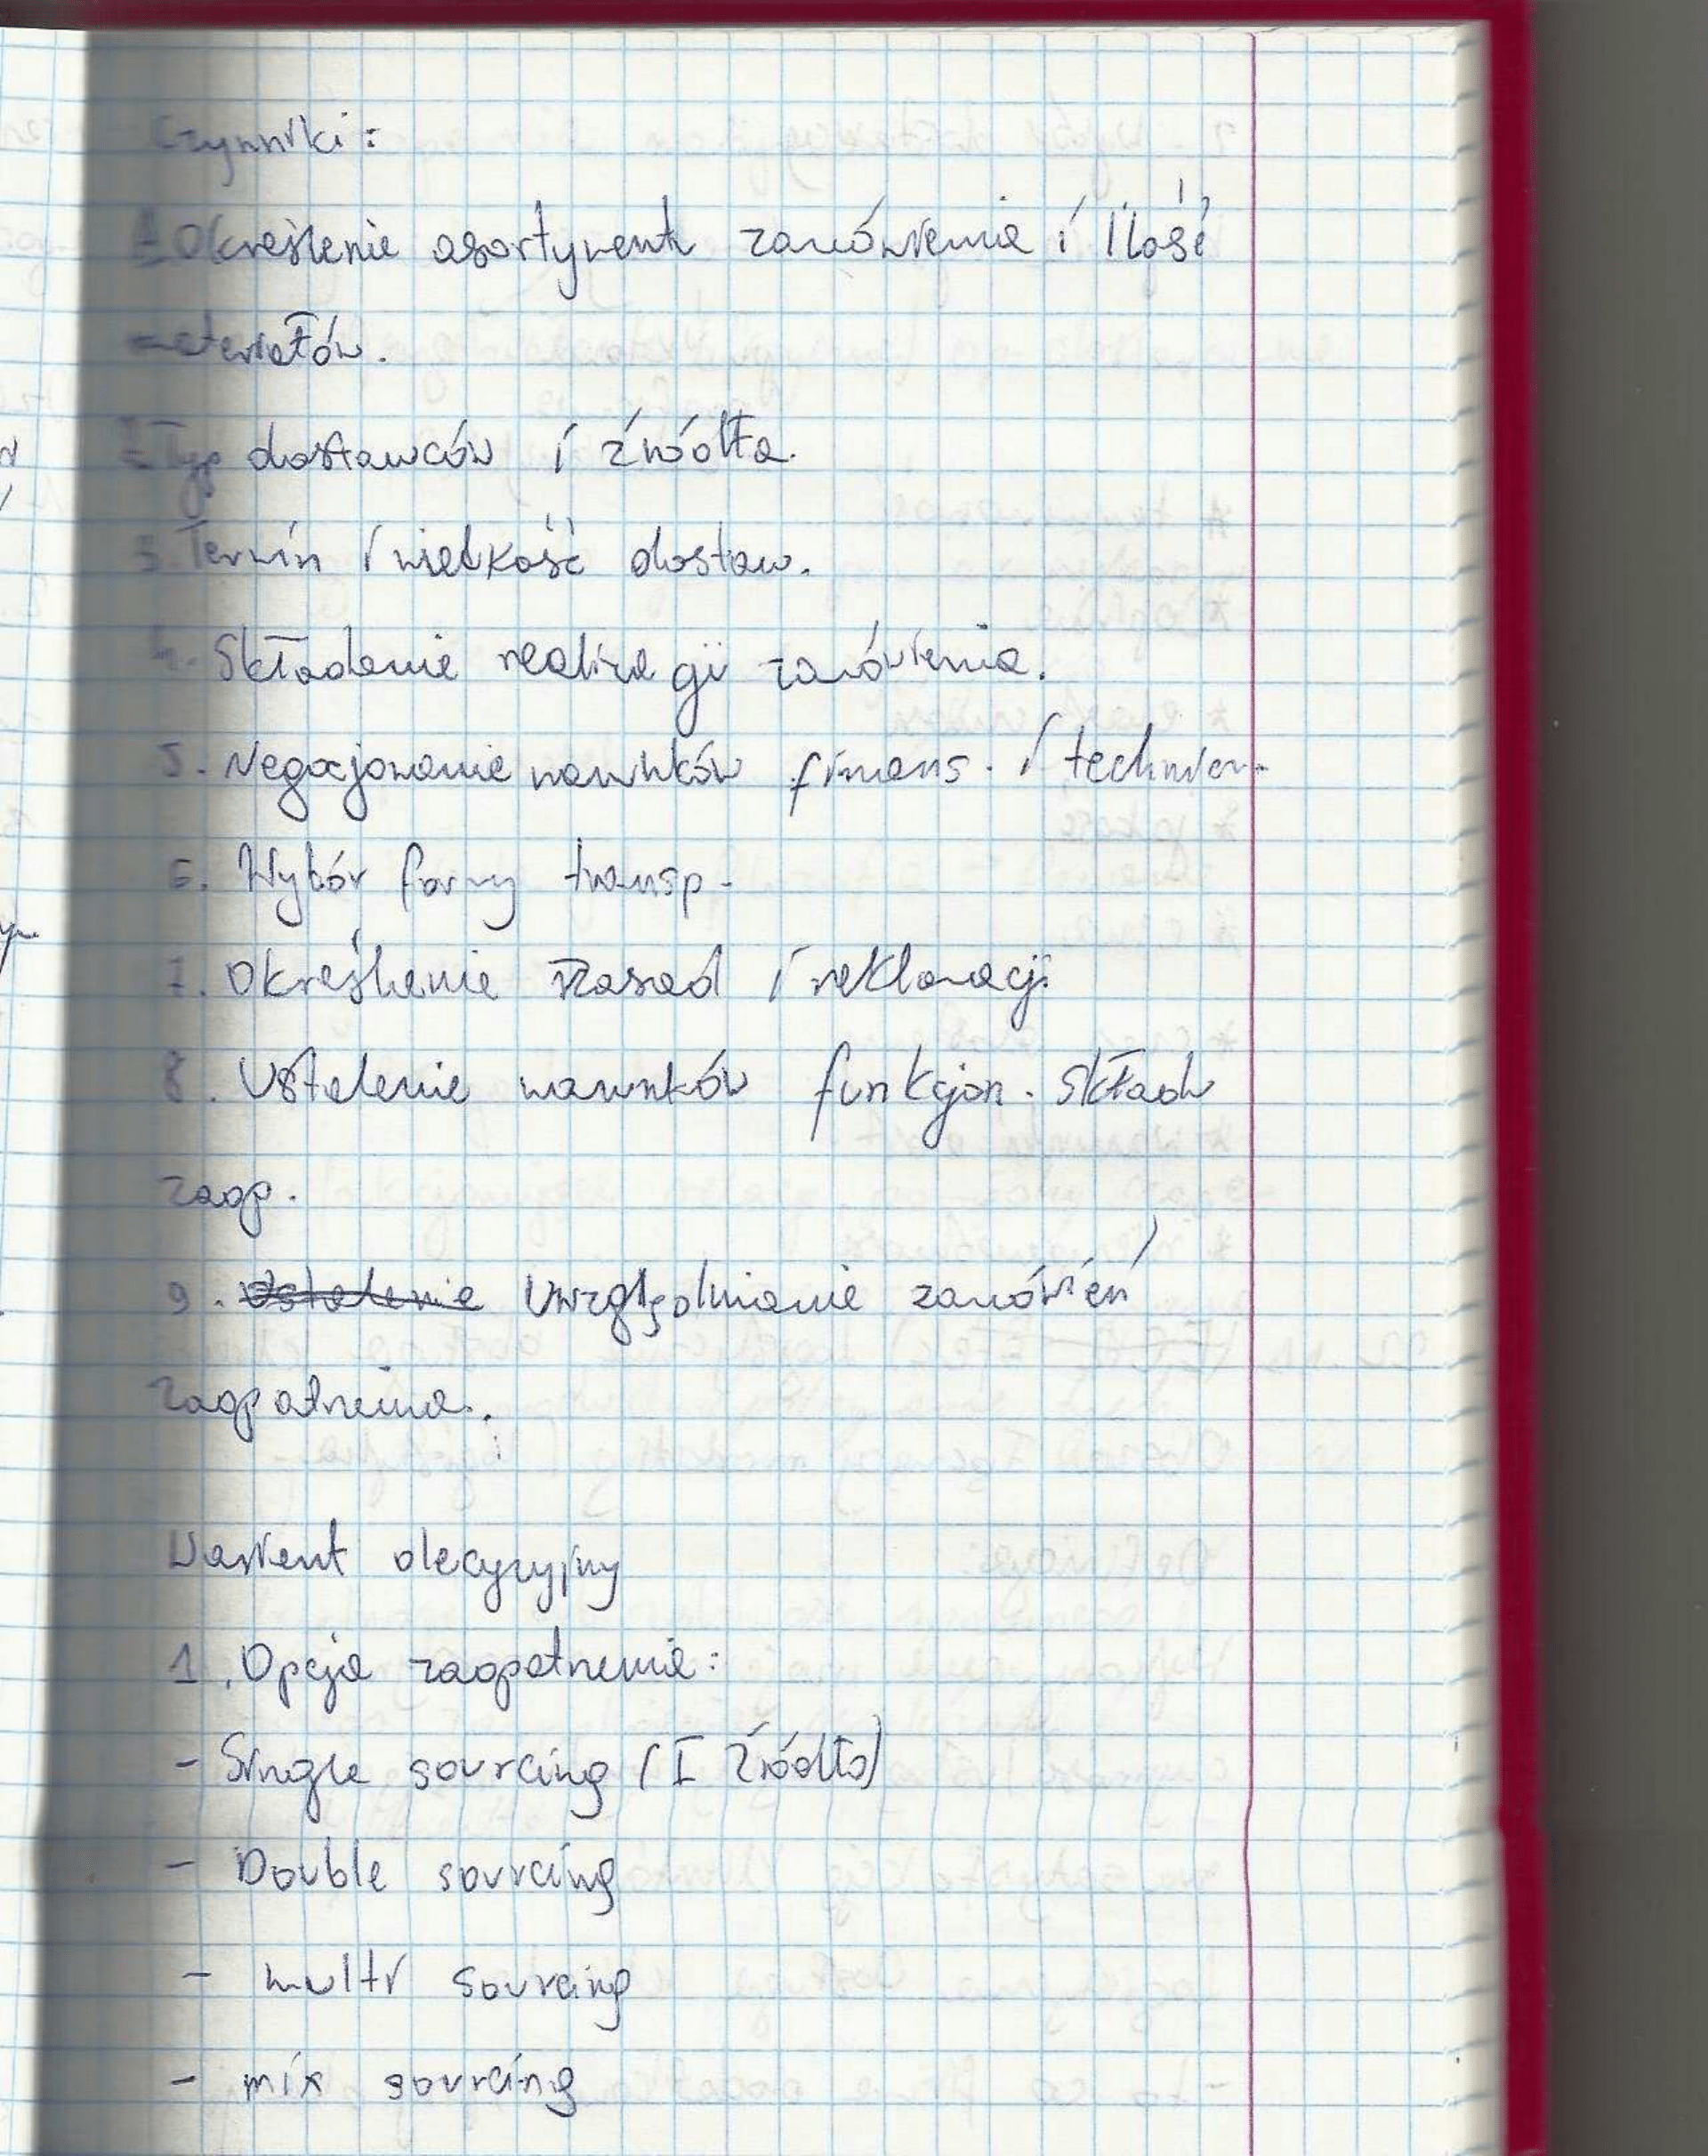 Czynniki:
1. Określenie asortyment zamówienia i ilość
materiałów.
2. Typ dostawców i źródła.
3. Termin i wielkość dostaw.
4. Składanie realizacji zamówienia.
5. Negocjowanie warunków finans. i technicz.
6. Wybór formy transp.
7. Określenie zasad i reklamacji
8. Ustalenie warunków funkcjon. składu
zaop.
9. Ustalenie Uwzględnianie zamówień
zaopatrzenia.
Wariant decyzyjny
1. Opcja zaopatrzenia:
- Single sourcing (I źródło)
- Double sourcing
- multi sourcing
- mix sourcing